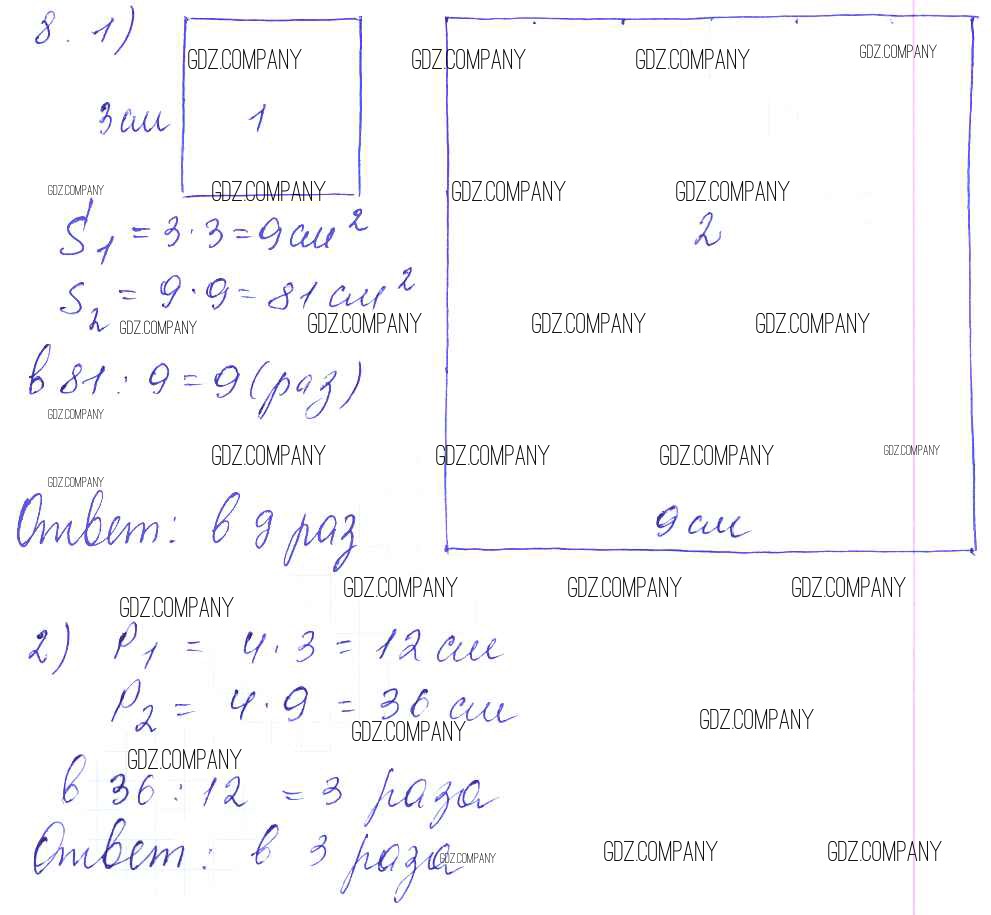 8. 1)
GDZ.COMPANY GDZ.COMPANY GDZ.COMPANY GDZ.COMPANY
3 см 1
GDZ.COMPANY GDZ.COMPANY GDZ.COMPANY GDZ.COMPANY
S1 = 3 · 3 = 9 см² 2
S2 = 9 · 9 = 81 см²
GDZ.COMPANY GDZ.COMPANY GDZ.COMPANY GDZ.COMPANY
в 81 : 9 = 9 (раз)
GDZ.COMPANY
GDZ.COMPANY GDZ.COMPANY GDZ.COMPANY GDZ.COMPANY
GDZ.COMPANY
Ответ: в 9 раз 9 см
GDZ.COMPANY GDZ.COMPANY GDZ.COMPANY
GDZ.COMPANY
2) P1 = 4 · 3 = 12 см
P2 = 4 · 9 = 36 см
GDZ.COMPANY GDZ.COMPANY
GDZ.COMPANY
в 36 : 12 = 3 раза
Ответ: в 3 раза
GDZ.COMPANY GDZ.COMPANY GDZ.COMPANY